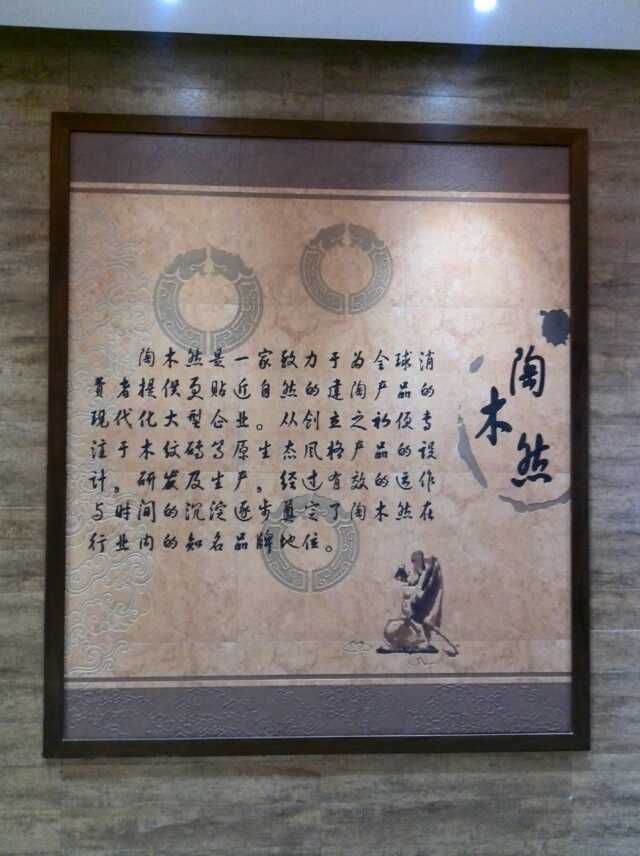 陶木然是一家致力于为全球消
费者提供更贴近自然的建陶产品的
现代化大型企业。从创立之初便专
注于木纹砖等原生态风格产品的设
计。研发及生产。经过有效的运作
与时间的沉淀逐步奠定了陶木然在
行业内的知名品牌地位。
陶木然